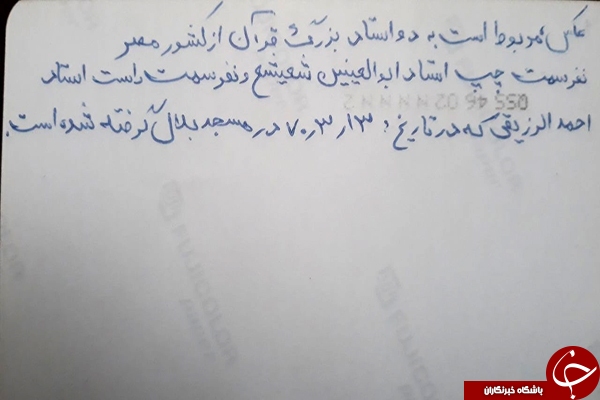 عکس مربوط است به دو استاد بزرگ قرآن از کشور مصر
نفر سمت چپ استاد ابوالعینین شعیشع و نفر سمت راست استاد
055 46 02 NNNNN 2
احمد الرزیقی که در تاریخ: ۷۰٫۳٫۱۳ در مسجد بلال گرفته شده است.
باشگاه خبرنگاران